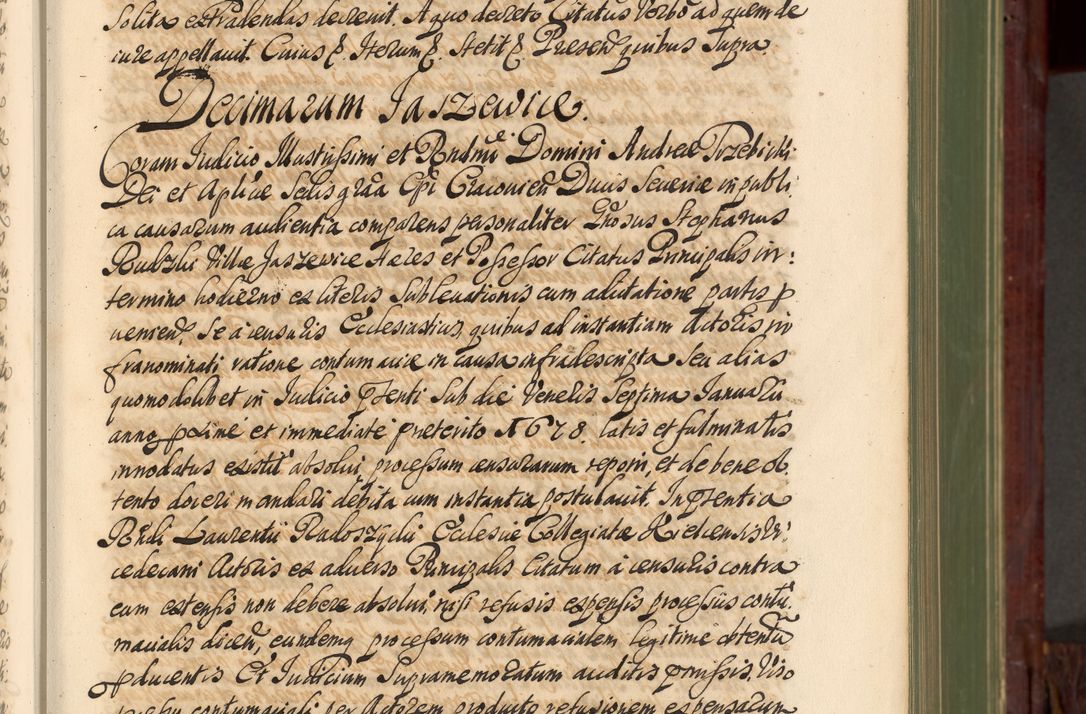 Solita extradendas decrevit. A quo decreto Citatus Verbo ad quem de
iure appellavit. Cuius &. Iterum &. Stetit & Presen quibus Supra.
Decimarum Jaszewice.
Coram Iudicio Illustrissimi et Rndmi Domini Andreæ Trzebicki
Dei et Aplicæ Sedis graa Epi Cracovien Ducis Severiæ in publi
ca causarum audientia comparens personaliter Gnosus Stephanus
Rudzki Villæ Jaszewice Hæres et Possessor Citatus Principalis in
termino hodierno ex literis Sublevationis cum adcitatione partis p
venien. Se à censuris Ecclesiasticis, quibus ad instantiam Actoris in
franominati ratione contumaciæ in causa infradescripta Seu alias
quomodolibet in Iudicio pñti Sub die Veneris Septima Ianuarii
anno pxime et immediate preterito 1678. latis et fulminatis
innodatus extitit absolvi, processum censurarum reponi, et de bene ob
tento doceri mandari debita cum instantia postulavit. In pñtentia
Rndi Laurentii Radoszycki Ecclesiæ Collegiatæ Kielcensis Vi
cedecani Actoris ex adverso Principalis Citatum à censuris contra
eum extensis non debere absolvi, nisi refusis expensis processus contu
macialis dicen, eundemq processum contumacialem legitime obtentu
pducentis Et Iudicium Supramemoratum auditis pmissis. Viso
contumaciali per Actorem producto refusionem expensarum